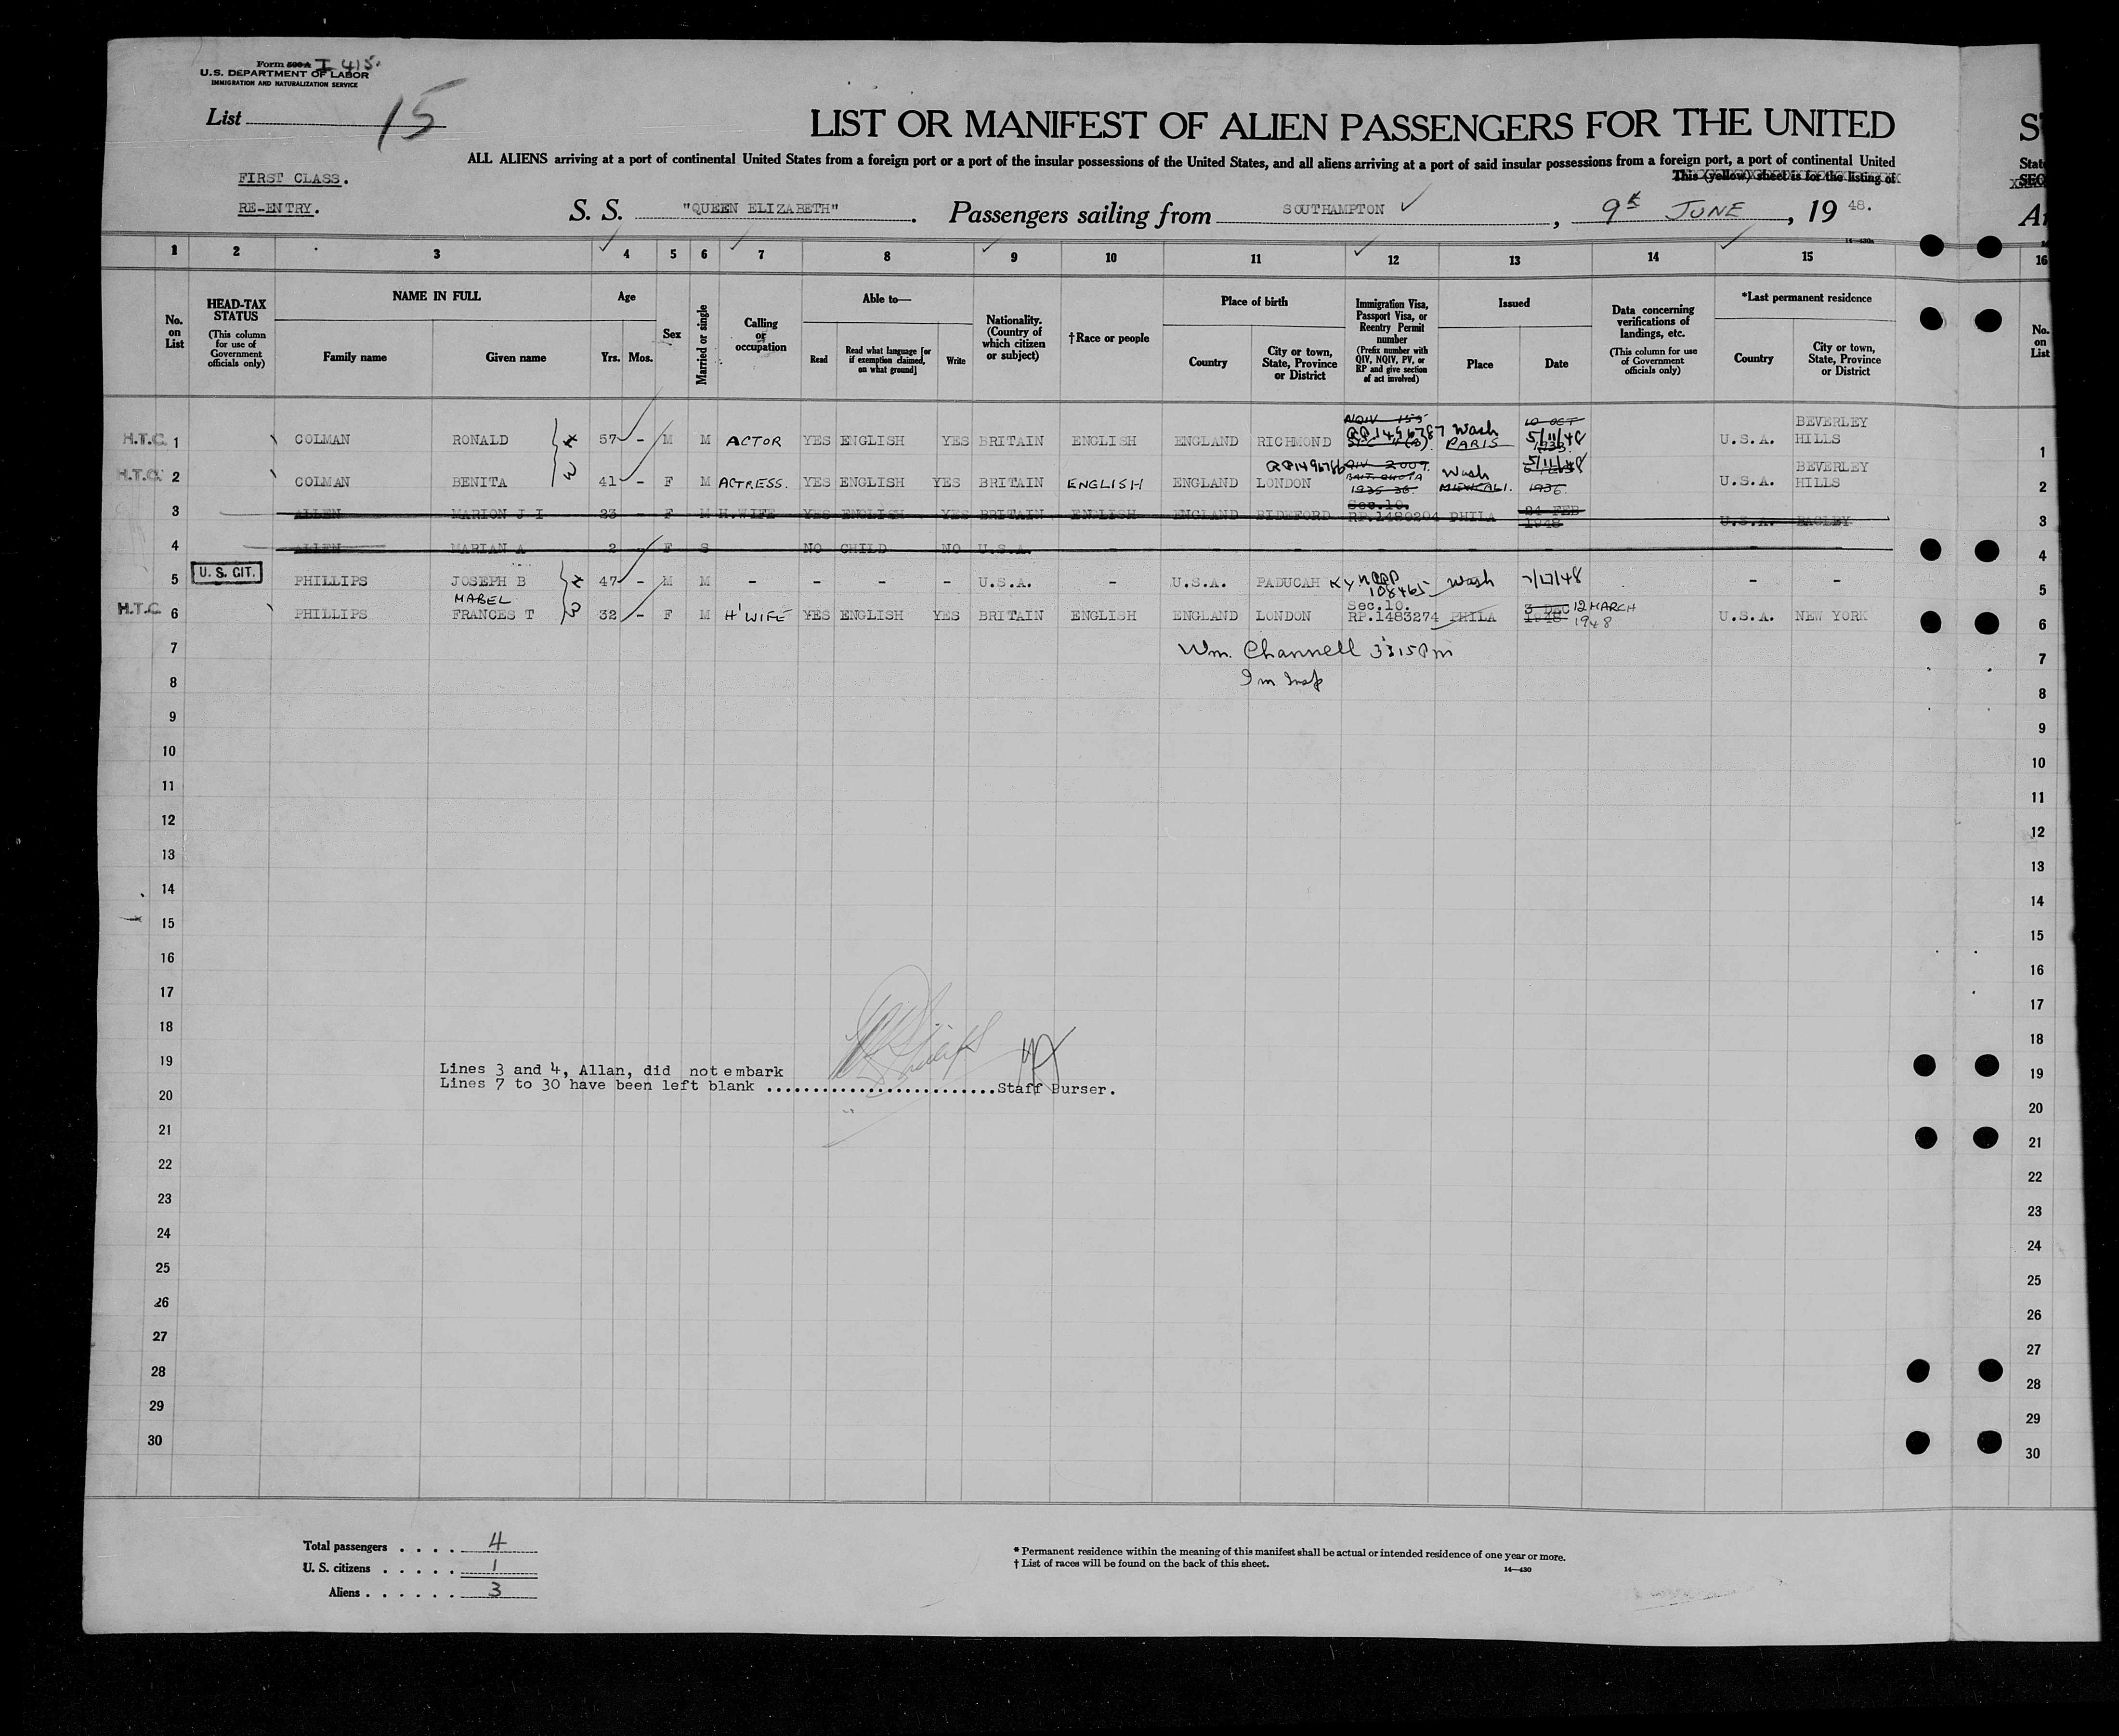 Form 500 A I 415.
U.S. DEPARTMENT OF LABOR
IMMIGRATION AND NATURALIZATION SERVICE
List 15
LIST OR MANIFEST OF ALIEN PASSENGERS FOR THE UNITED
ALL ALIENS arriving at a port of continental United States from a foreign port or a port of the insular possessions of the United States, and all aliens arriving at a port of said insular possessions from a foreign port, a port of continental United
This (yellow) sheet is for the listing of
FIRST CLASS.
RE-ENTRY.
S. S. "QUEEN ELIZABETH". Passengers sailing from SOUTHAMPTON, 9th JUNE, 19 48.
1 2 3 4 5 6 7 8 9 10 11 12 13 14 15 16
No. on List
HEAD-TAX STATUS (This column for use of Government officials only)
NAME IN FULL
Family name Given name
Age
Yrs. Mos.
Sex
Married or single
Calling or occupation
Able to—
Read Read what language [or if exemption claimed, on what ground] Write
Nationality. (Country of which citizen or subject)
†Race or people
Place of birth
Country City or town, State, Province or District
Immigration Visa, Passport Visa, or Reentry Permit number (Prefix number with QIV, NQIV, PV, or RP and give section of act involved)
Issued
Place Date
Data concerning verifications of landings, etc. (This column for use of Government officials only)
*Last permanent residence
Country City or town, State, Province or District
No. on List
H.T.C. 1 COLMAN RONALD 57 - M M ACTOR YES ENGLISH YES BRITAIN ENGLISH ENGLAND RICHMOND NQIV 155 RP1496787 Wash PARIS 10 OCT 5/11/48 U.S.A. BEVERLEY HILLS 1
H.T.C. 2 COLMAN BENITA 41 - F M ACTRESS. YES ENGLISH YES BRITAIN ENGLISH ENGLAND LONDON RP1496786 QIV 2007. 1935 36. Wash MEXICALI. 5/11/48 1936. U.S.A. BEVERLEY HILLS 2
3 ALLEN MARION J I 23 - F M H.WIFE YES ENGLISH YES BRITAIN ENGLISH ENGLAND BIDEFORD Sec.10. RP.1480204 PHILA 24 FEB 1948 U.S.A. BAGLEY 3
4 ALLEN MARIAN A 2 - F S NO CHILD NO U.S.A. - - - - - - - - 4
U. S. CIT. 5 PHILLIPS JOSEPH B 47 - M M - - - - U.S.A. - U.S.A. PADUCAH KY 108465 Wash /17/48 - - 5
H.T.C. 6 PHILLIPS MABEL FRANCES T 32 - F M H'WIFE YES ENGLISH YES BRITAIN ENGLISH ENGLAND LONDON Sec.10. RP.1483274 PHILA 3 DEC 1948 12 MARCH 1948 U.S.A. NEW YORK 6
7 Wm. Channell 3:15 Pm 7
8 Im Insp 8
9 9
10 10
11 11
12 12
13 13
14 14
15 15
16 16
17 17
18 18
19 Lines 3 and 4, Allan, did not embark 19
Lines 7 to 30 have been left blank ..............................Staff Purser.
20 20
21 21
22 22
23 23
24 24
25 25
26 26
27 27
28 28
29 29
30 30
Total passengers . . . . 4
U. S. citizens . . . . . 1
Aliens . . . . . . 3
* Permanent residence within the meaning of this manifest shall be actual or intended residence of one year or more.
† List of races will be found on the back of this sheet.
14—430